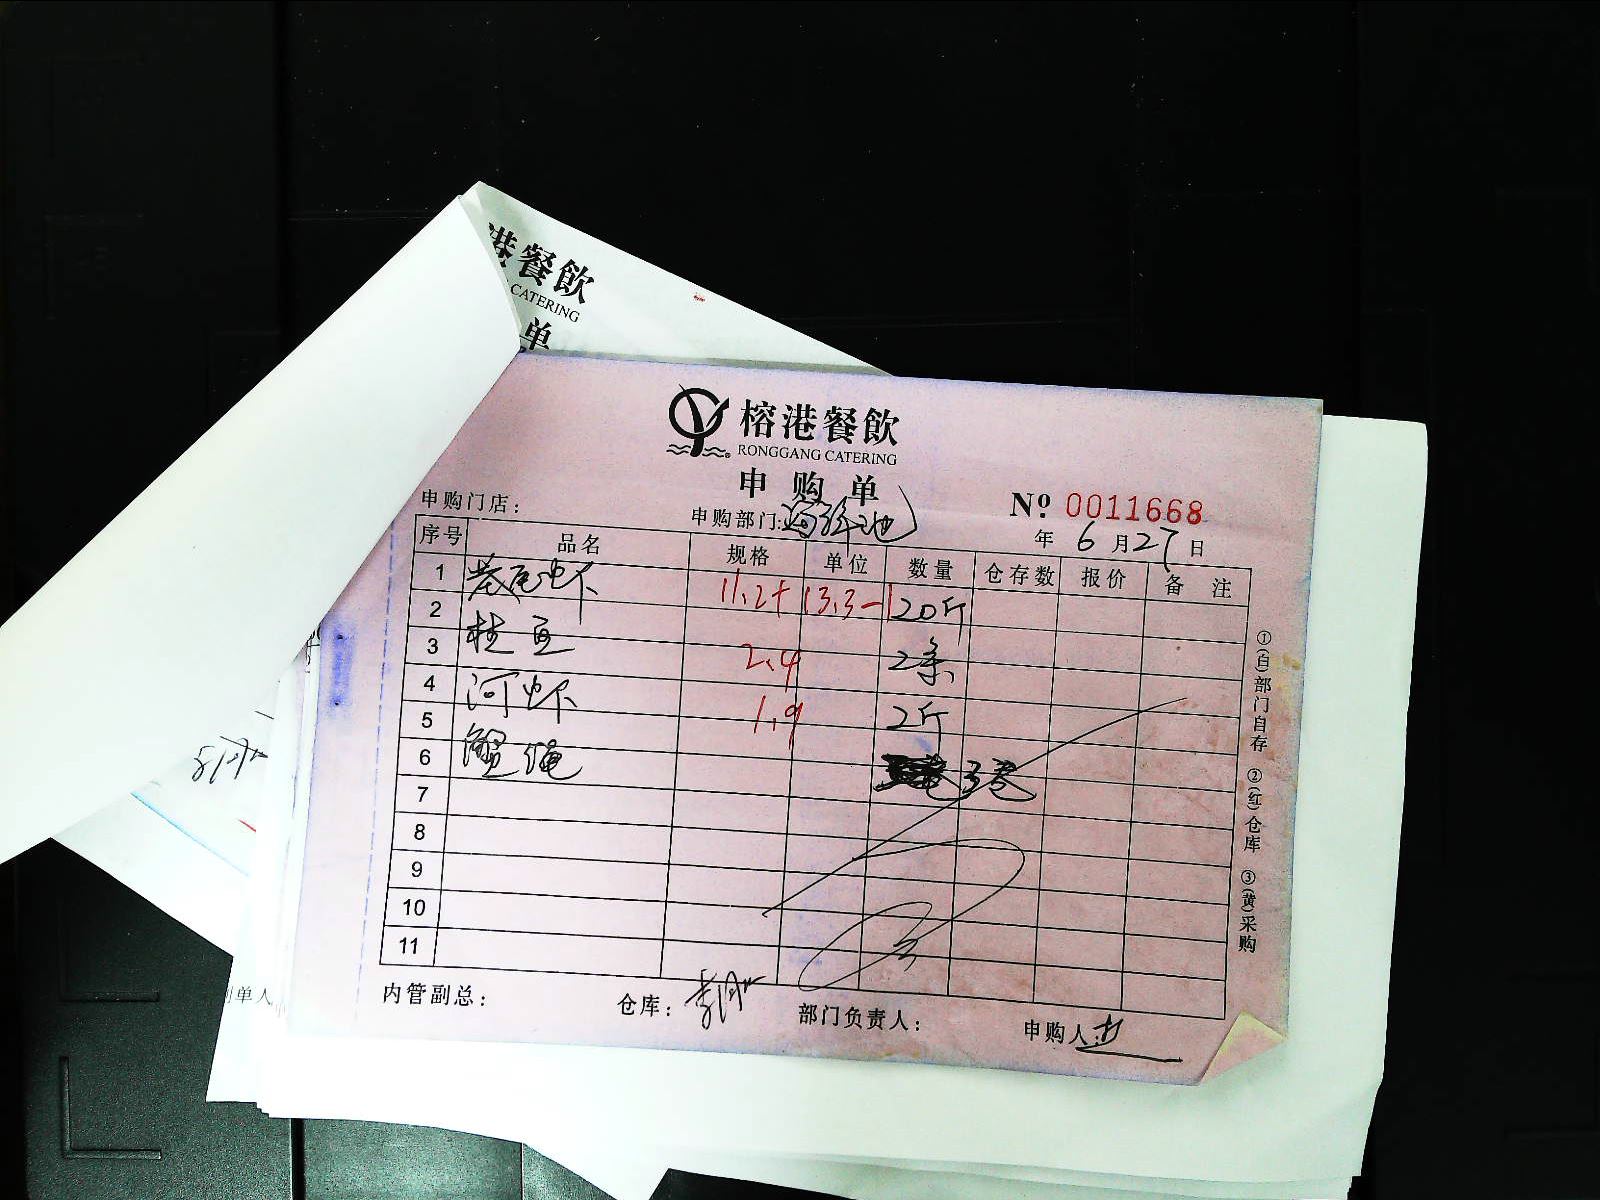 港餐飲
CATERING
单
榕港餐飲
RONGGANG CATERING
申购单
申购门店：
申购部门：海鲜池
№ 0011668
年 6 月 27 日
序号 品名 规格 单位 数量 仓存数 报价 备注
1 卷尾虾 11.2+ 13.3-1 20斤
2
3 桂鱼 2.4 2条
4 河虾 1.9 2斤
5
6 蟹绳 3卷
7
8
9
10
11
内管副总：
仓库：
部门负责人：
申购人：
①(白)部门自存 ②(红)仓库 ③(黄)采购
制单人